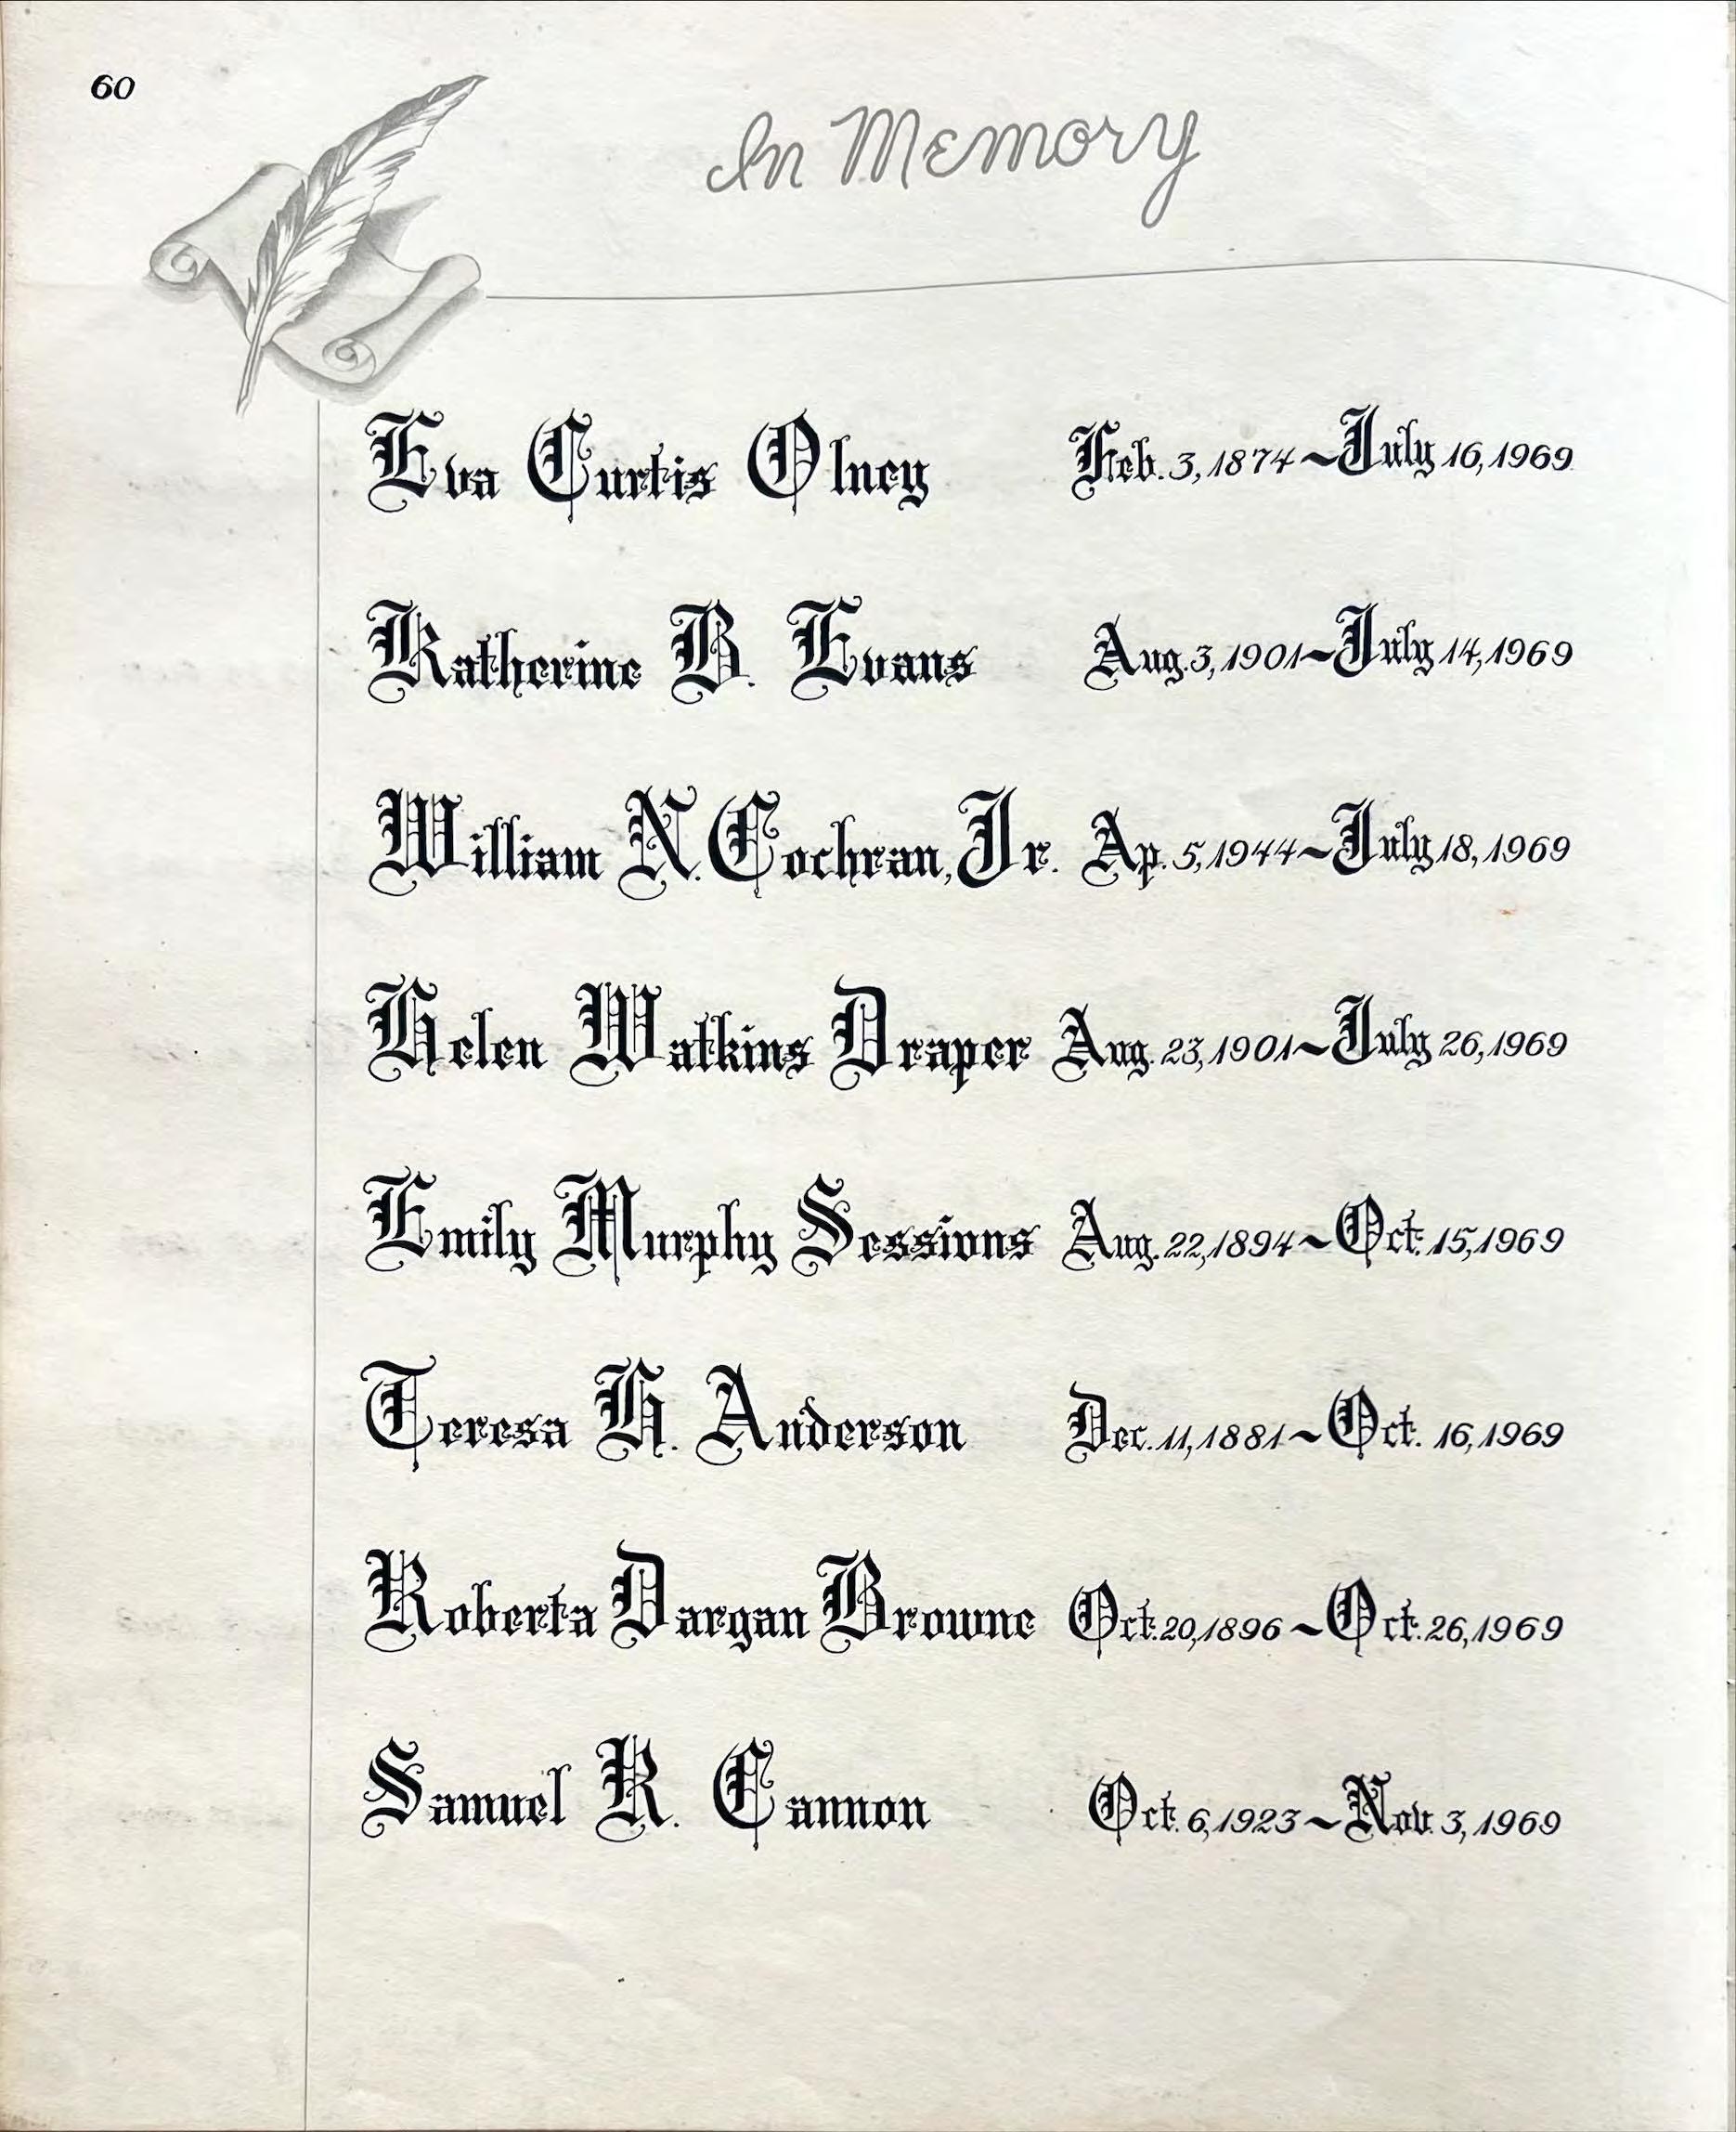 60
In Memory
Eva Curtis Olney Feb. 3, 1874 ~ July 16, 1969
Katherine B. Evans Aug. 3, 1901 ~ July 14, 1969
William N. Cochran, Jr. Ap. 5, 1944 ~ July 18, 1969
Helen Watkins Draper Aug. 23, 1901 ~ July 26, 1969
Emily Murphy Sessions Aug. 22, 1894 ~ Oct. 15, 1969
Teresa H. Anderson Dec. 11, 1881 ~ Oct. 16, 1969
Roberta Dargan Browne Oct. 20, 1896 ~ Oct. 26, 1969
Samuel R. Cannon Oct. 6, 1923 ~ Nov. 3, 1969